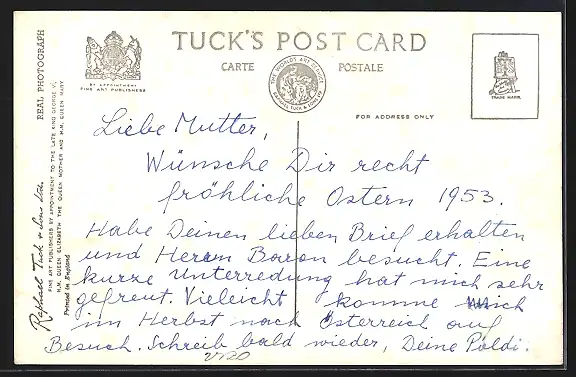 TUCK'S POST CARD
CARTE POSTALE
BY APPOINTMENT
FINE ART PUBLISHERS
THE WORLD'S ART SERVICE
RAPHAEL TUCK & SONS LTD
TRADE MARK
FOR ADDRESS ONLY
REAL PHOTOGRAPH
Raphael Tuck & Sons Ltd.
FINE ART PUBLISHERS BY APPOINTMENT TO THE LATE KING GEORGE V,
H.M. QUEEN ELIZABETH THE QUEEN MOTHER AND H.M. QUEEN MARY
Printed in England
Liebe Mutter,
Wünsche Dir recht
fröhliche Ostern 1953.
Habe Deinen lieben Brief erhalten
und Herrn Baron besucht. Eine
kurze Unterredung hat mich sehr
gefreut. Vieleicht komme ich
im Herbst nach Österreich auf
Besuch. Schreib bald wieder, Deine Poldi.